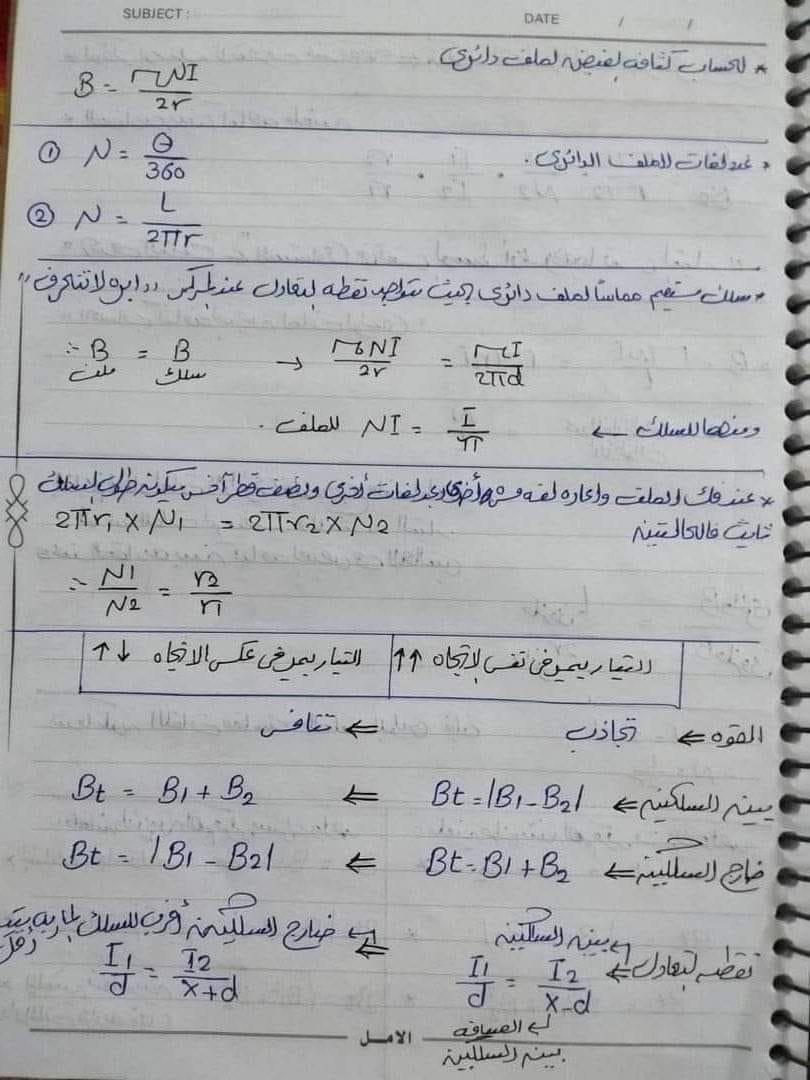 SUBJECT: DATE / /
* لحساب كثافه الفيض لملف دائرى
B = μNI / 2r
* عدد لفات الملف الدائرى.
① N = θ / 360
② N = L / 2πr
* سلك مستقيم مماساً لملف دائرى بحيث تتواجد نقطه التعادل عند المركز ,, ابره لا تنحرف "
∴ B ملف = B سلك → μNI / 2r = μI / 2πd
ومنها للسلك ← I / π = NI للملف.
* عند فك الملف واعاده لفه مره أخرى بعدد لفات أخرى ونصف قطر آخر يكون طول السلك
ثابت فالحالتين 2πr1 × N1 = 2πr2 × N2
∴ N1 / N2 = r2 / r1
التيار يمر فى نفس الاتجاه ↑↑ التيار يمر فى عكس الاتجاه ↑↓
القوه ⇐ تجاذب ⇐ تنافر
بين السلكين ⇐ Bt = |B1 - B2| ⇐ Bt = B1 + B2
خارج السلكين ⇐ Bt = B1 + B2 ⇐ Bt = |B1 - B2|
نقطه التعادل ⇐ بين السلكين ⇐ خارج السلكين أقرب للسلك المار به تيار أقل
I1 / d = I2 / x-d I1 / d = I2 / x+d
المسافه
بين السلكين
الامل